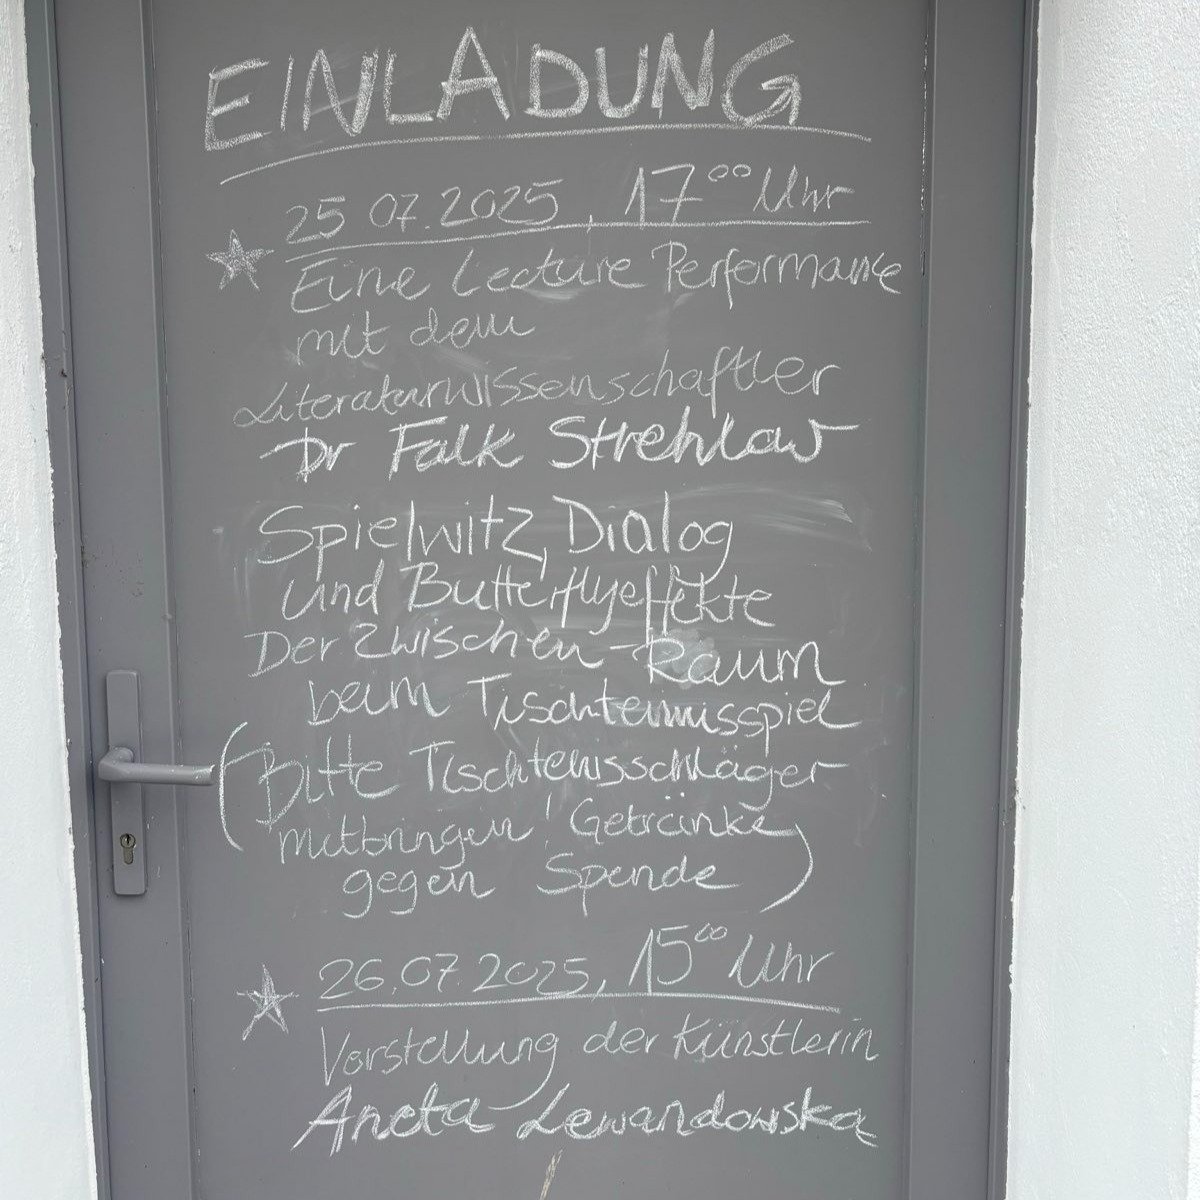 EINLADUNG
25 07.2025, 17⁰⁰ Uhr
Eine Lecture Performance
mit dem
Literaturwissenschaftler
Dr Falk Strehlow
Spielwitz, Dialog
und Butterflyeffekte
Der Zwischen-Raum
beim Tischtennisspiel
(Bitte Tischtennisschläger
mitbringen! Getränke
gegen Spende)
26.07.2025, 15⁰⁰ Uhr
Vorstellung der Künstlerin
Aneta Lewandowska